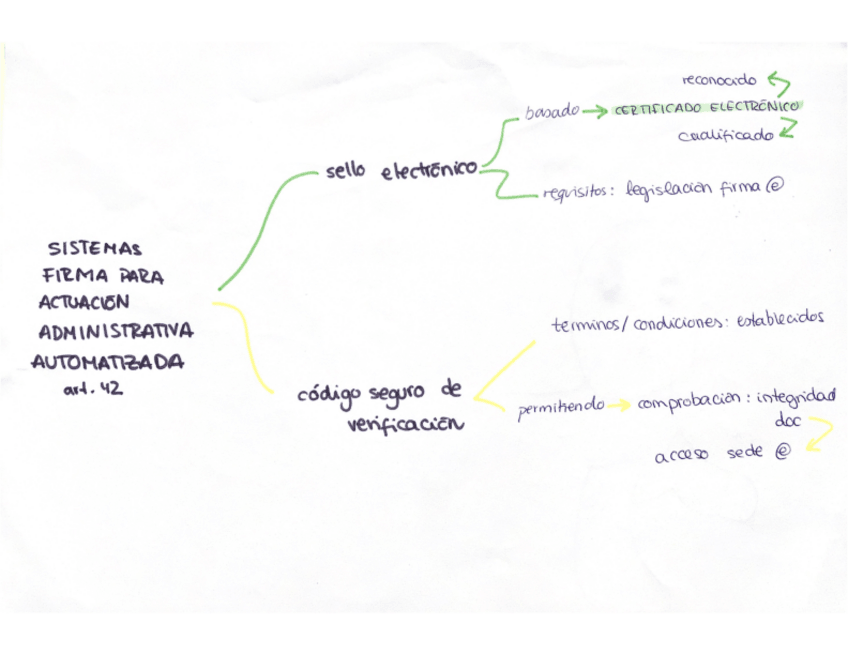 SISTEMAS
FIRMA PARA
ACTUACIÓN
ADMINISTRATIVA
AUTOMATIZADA
art. 42
sello electrónico
basado → CERTIFICADO ELECTRÓNICO
reconocido
cualificado
requisitos: legislación firma @
código seguro de
verificación
terminos/condiciones: establecidos
permitiendo → comprobación: integridad
doc
acceso sede @